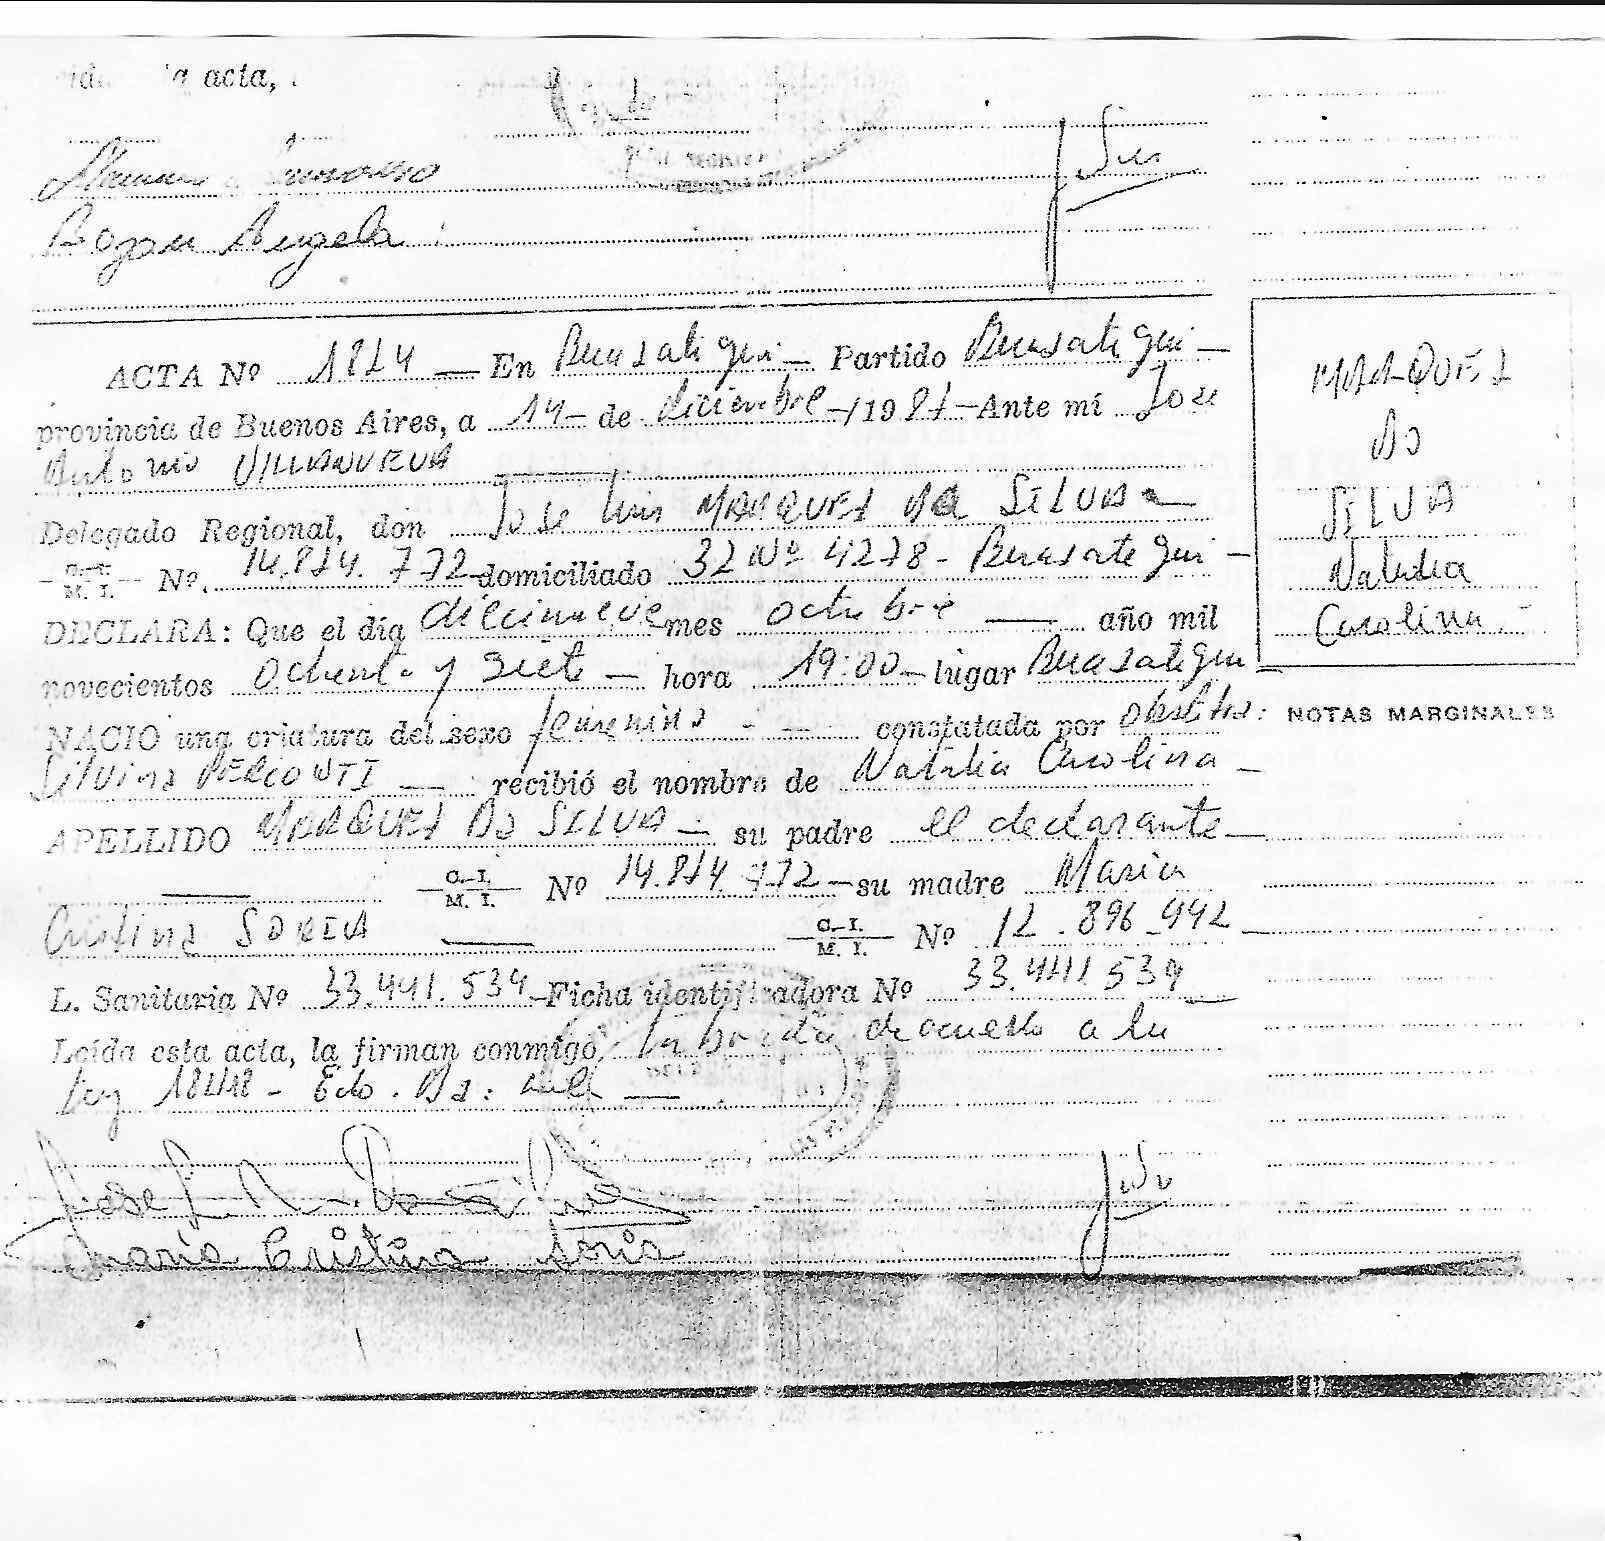 acta,
Bogan Angela
ACTA Nº 1814 — En Berazategui — Partido Berazategui —
provincia de Buenos Aires, a 14 — de diciembre — 1987 — Ante mí Jose
Antonio VILLANUEVA
Delegado Regional, don Jose Luis MARQUES DA SILVA —
C. I. M. I. Nº. 14.814.772 domiciliado 32 Nº 4278 - Berazategui —
DECLARA: Que el día diecinueve mes octubre — año mil
novecientos ochenta y siete — hora 19:00 — lugar Berazategui
NACIO una criatura del sexo femenino — constatada por obstetra:
Silvina recibió el nombre de Natalia Carolina —
APELLIDO MARQUES DA SILVA — su padre el declarante —
— C. I. M. I. Nº 14.814.772 — su madre Maria
Cristina SORIA — C. I. M. I. Nº 12.896.992 —
L. Sanitaria Nº 33.441.539 — Ficha identificadora Nº 33.441.539 —
Leída esta acta, la firman conmigo, labrada de acuerdo a la
Ley 18248 -
Maria Cristina Soria
MARQUES
DA
SILVA
Natalia
Carolina
NOTAS MARGINALES